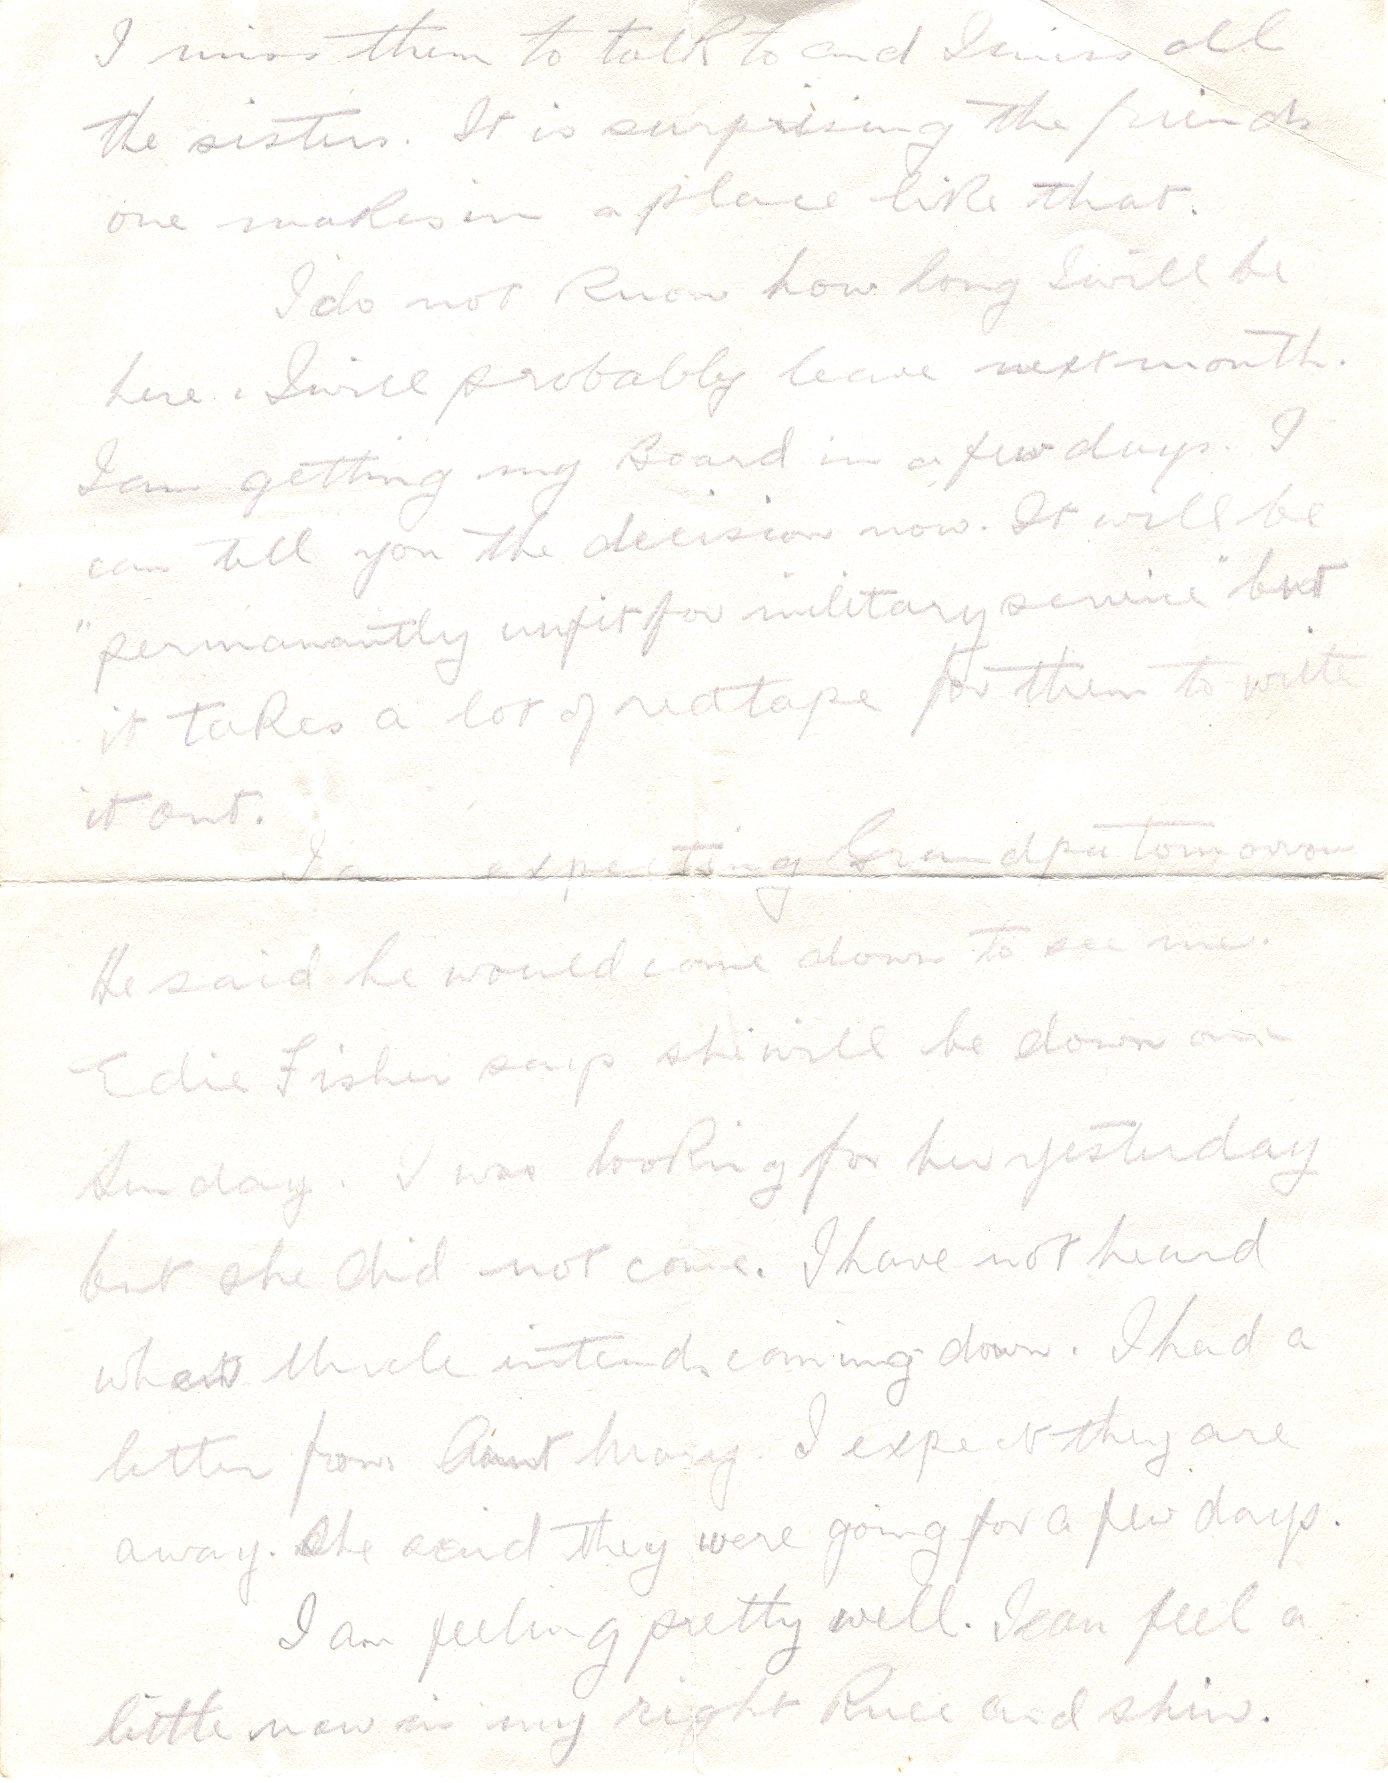 I miss them to talk to and I miss all
the sisters. It is surprising the friends
one makes in a place like that.
I do not know how long I will be
here. I will probably leave next month.
I am getting my Board in a few days. I
can tell you the decision now. It will be
"permanantly unfit for military service" but
it takes a lot of red tape for them to write
it out.
I am expecting Grandpa tomorrow
He said he would come down to see me.
Edie Fisher says she will be down on
Sunday. I was looking for her yesterday
but she did not come. I have not heard
when Uncle intends coming down. I had a
letter from Aunt Mary. I expect they are
away. She said they were going for a few days.
I am feeling pretty well. I can feel a
little now in my right knee and shin.